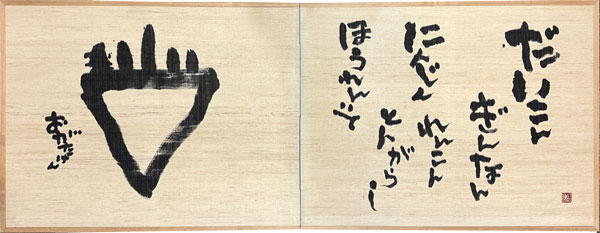 だいこん
ぎんなん
にんじん
れんこん
とんがらし
ほうれんそ